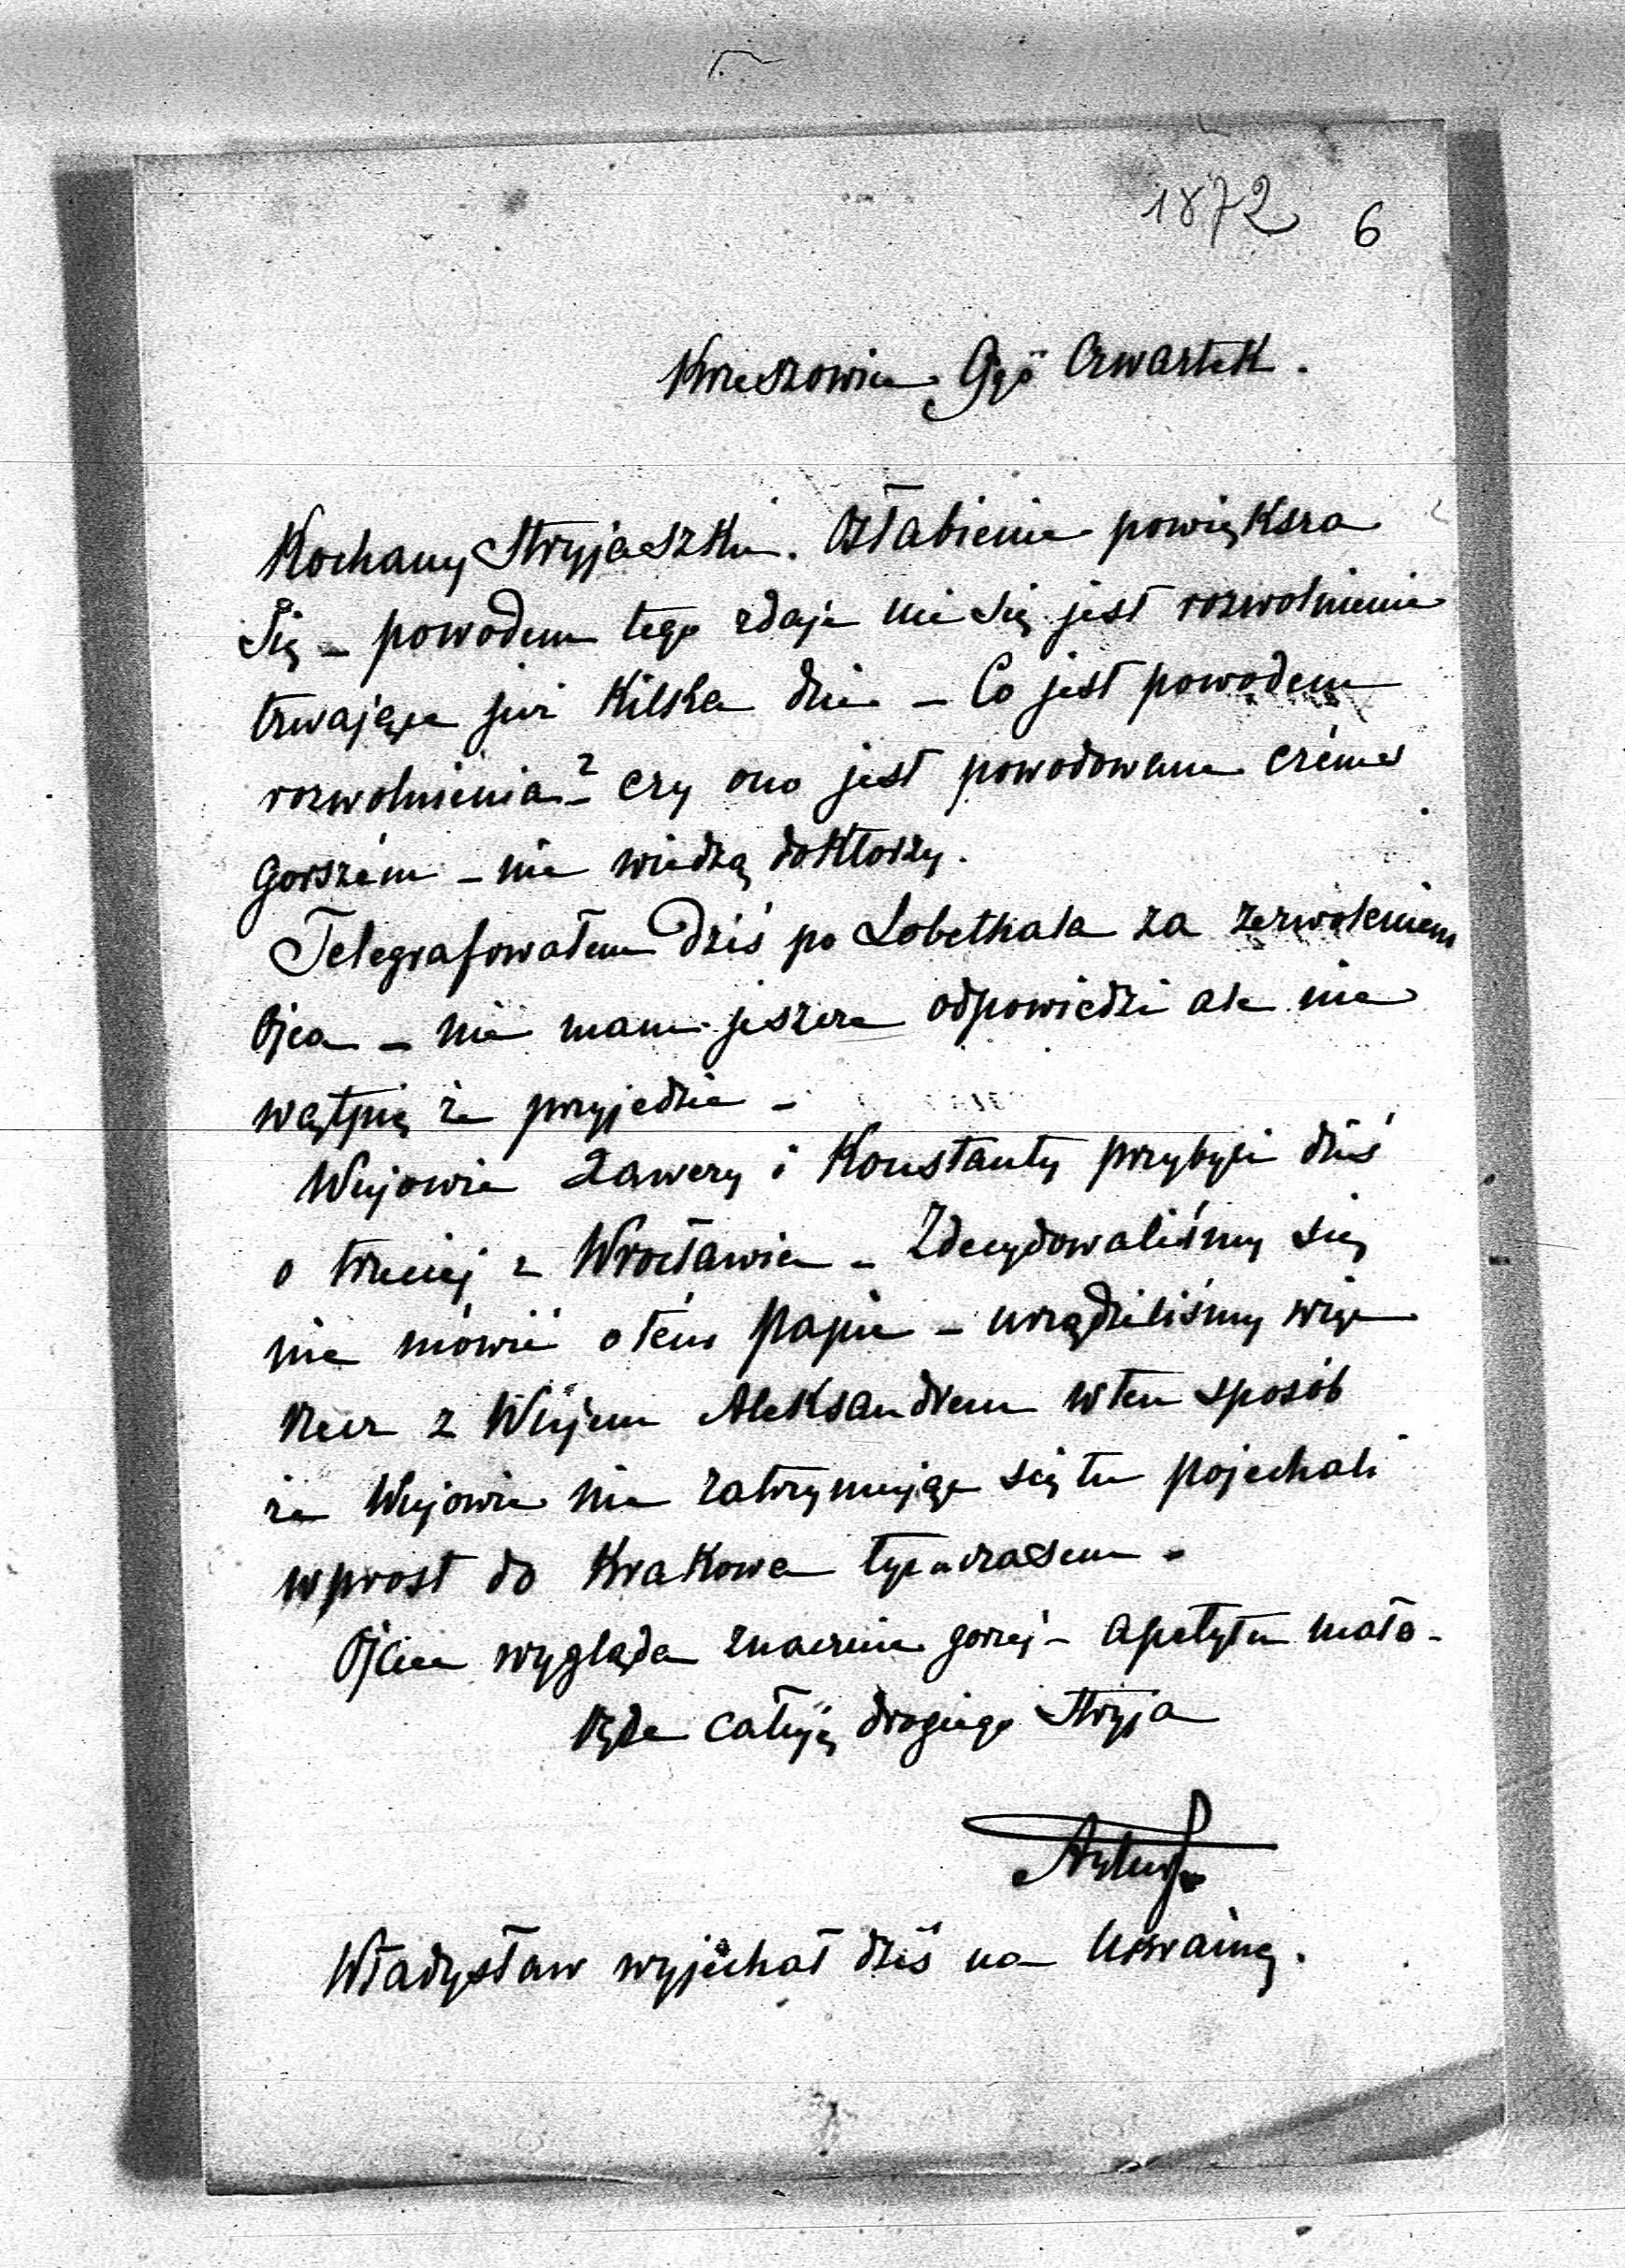 1872 6
Krzeszowice 9go Czwartek.
Kochany Stryjaszku. Osłabienie powiększa
się – powodem tego zdaje mi się jest rozwolnienie
trwające już kilka dni – Co jest powodem
rozwolnienia? – czy ono jest powodowane czémś
gorszém – nie wiedzą doktorzy.
Telegrafowałem dziś po Lobethala za zezwoleniem
Ojca – nie mam jeszcze odpowiedzi ale nie
wątpię że przyjedzie –
Wujowie Xawery i Konstanty przybyli dziś
o trzeciej z Wrocławia – Zdecydowaliśmy się
nie mówić o tém Papie – urządziliśmy więc
rzecz z Wujem Aleksandrem w ten sposób
że Wujowie nie zatrzymując się tu pojechali
wprost do Krakowa tymczasem –
Ojciec wygląda znacznie gorzej – apetytu mało –
Ręce całuję drogiego Stryja
Artur
Władysław wyjechał dziś na Ukrainę.